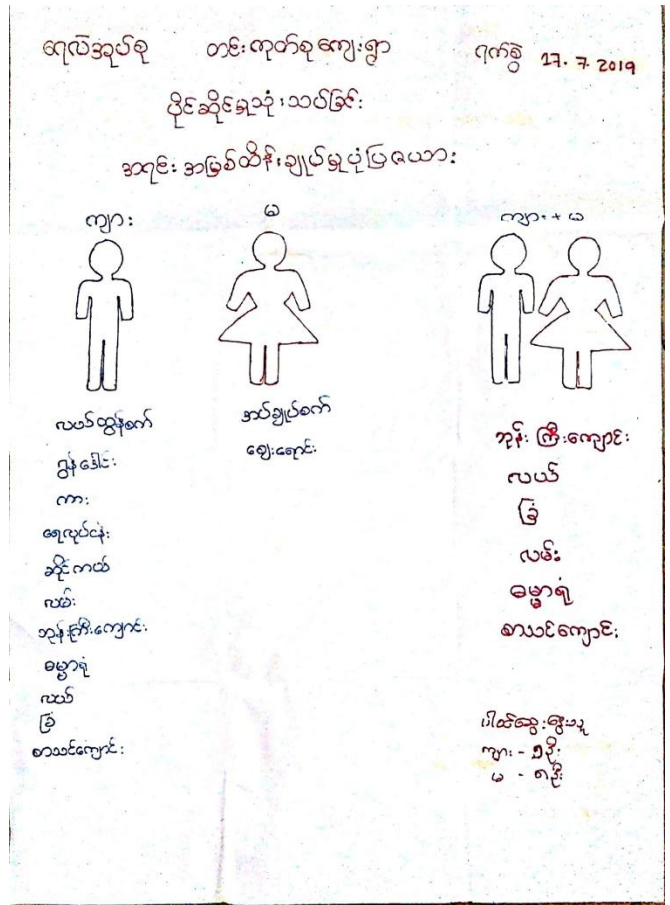 ရေလဲအုပ်စု တင်းကုတ်စုကျေးရွာ ရက်စွဲ 27. 7. 2019
ပိုင်ဆိုင်မှုသုံးသပ်ခြင်း
အရင်းအမြစ်ထိန်းချုပ်မှုပုံပြဇယား
ကျား
မ
ကျား + မ
လယ်ထွန်စက်
ဂွန်ဒေါင်း
ကား
ရေလုပ်ငန်း
ဆိုင်ကယ်
လမ်း
ဘုန်းကြီးကျောင်း
ဓမ္မာရုံ
လယ်
ခြံ
စာသင်ကျောင်း
အပ်ချုပ်စက်
ဈေးရောင်း
ဘုန်းကြီးကျောင်း
လယ်
ခြံ
လမ်း
ဓမ္မာရုံ
စာသင်ကျောင်း
ပါဝင်ဆွေးနွေးသူ
ကျား - ၅ဦး
မ - ၈ဦး